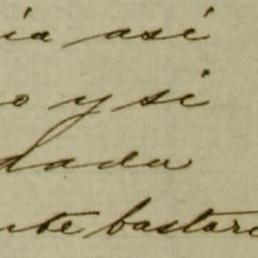 ia así
o y si
dada
nte bastar